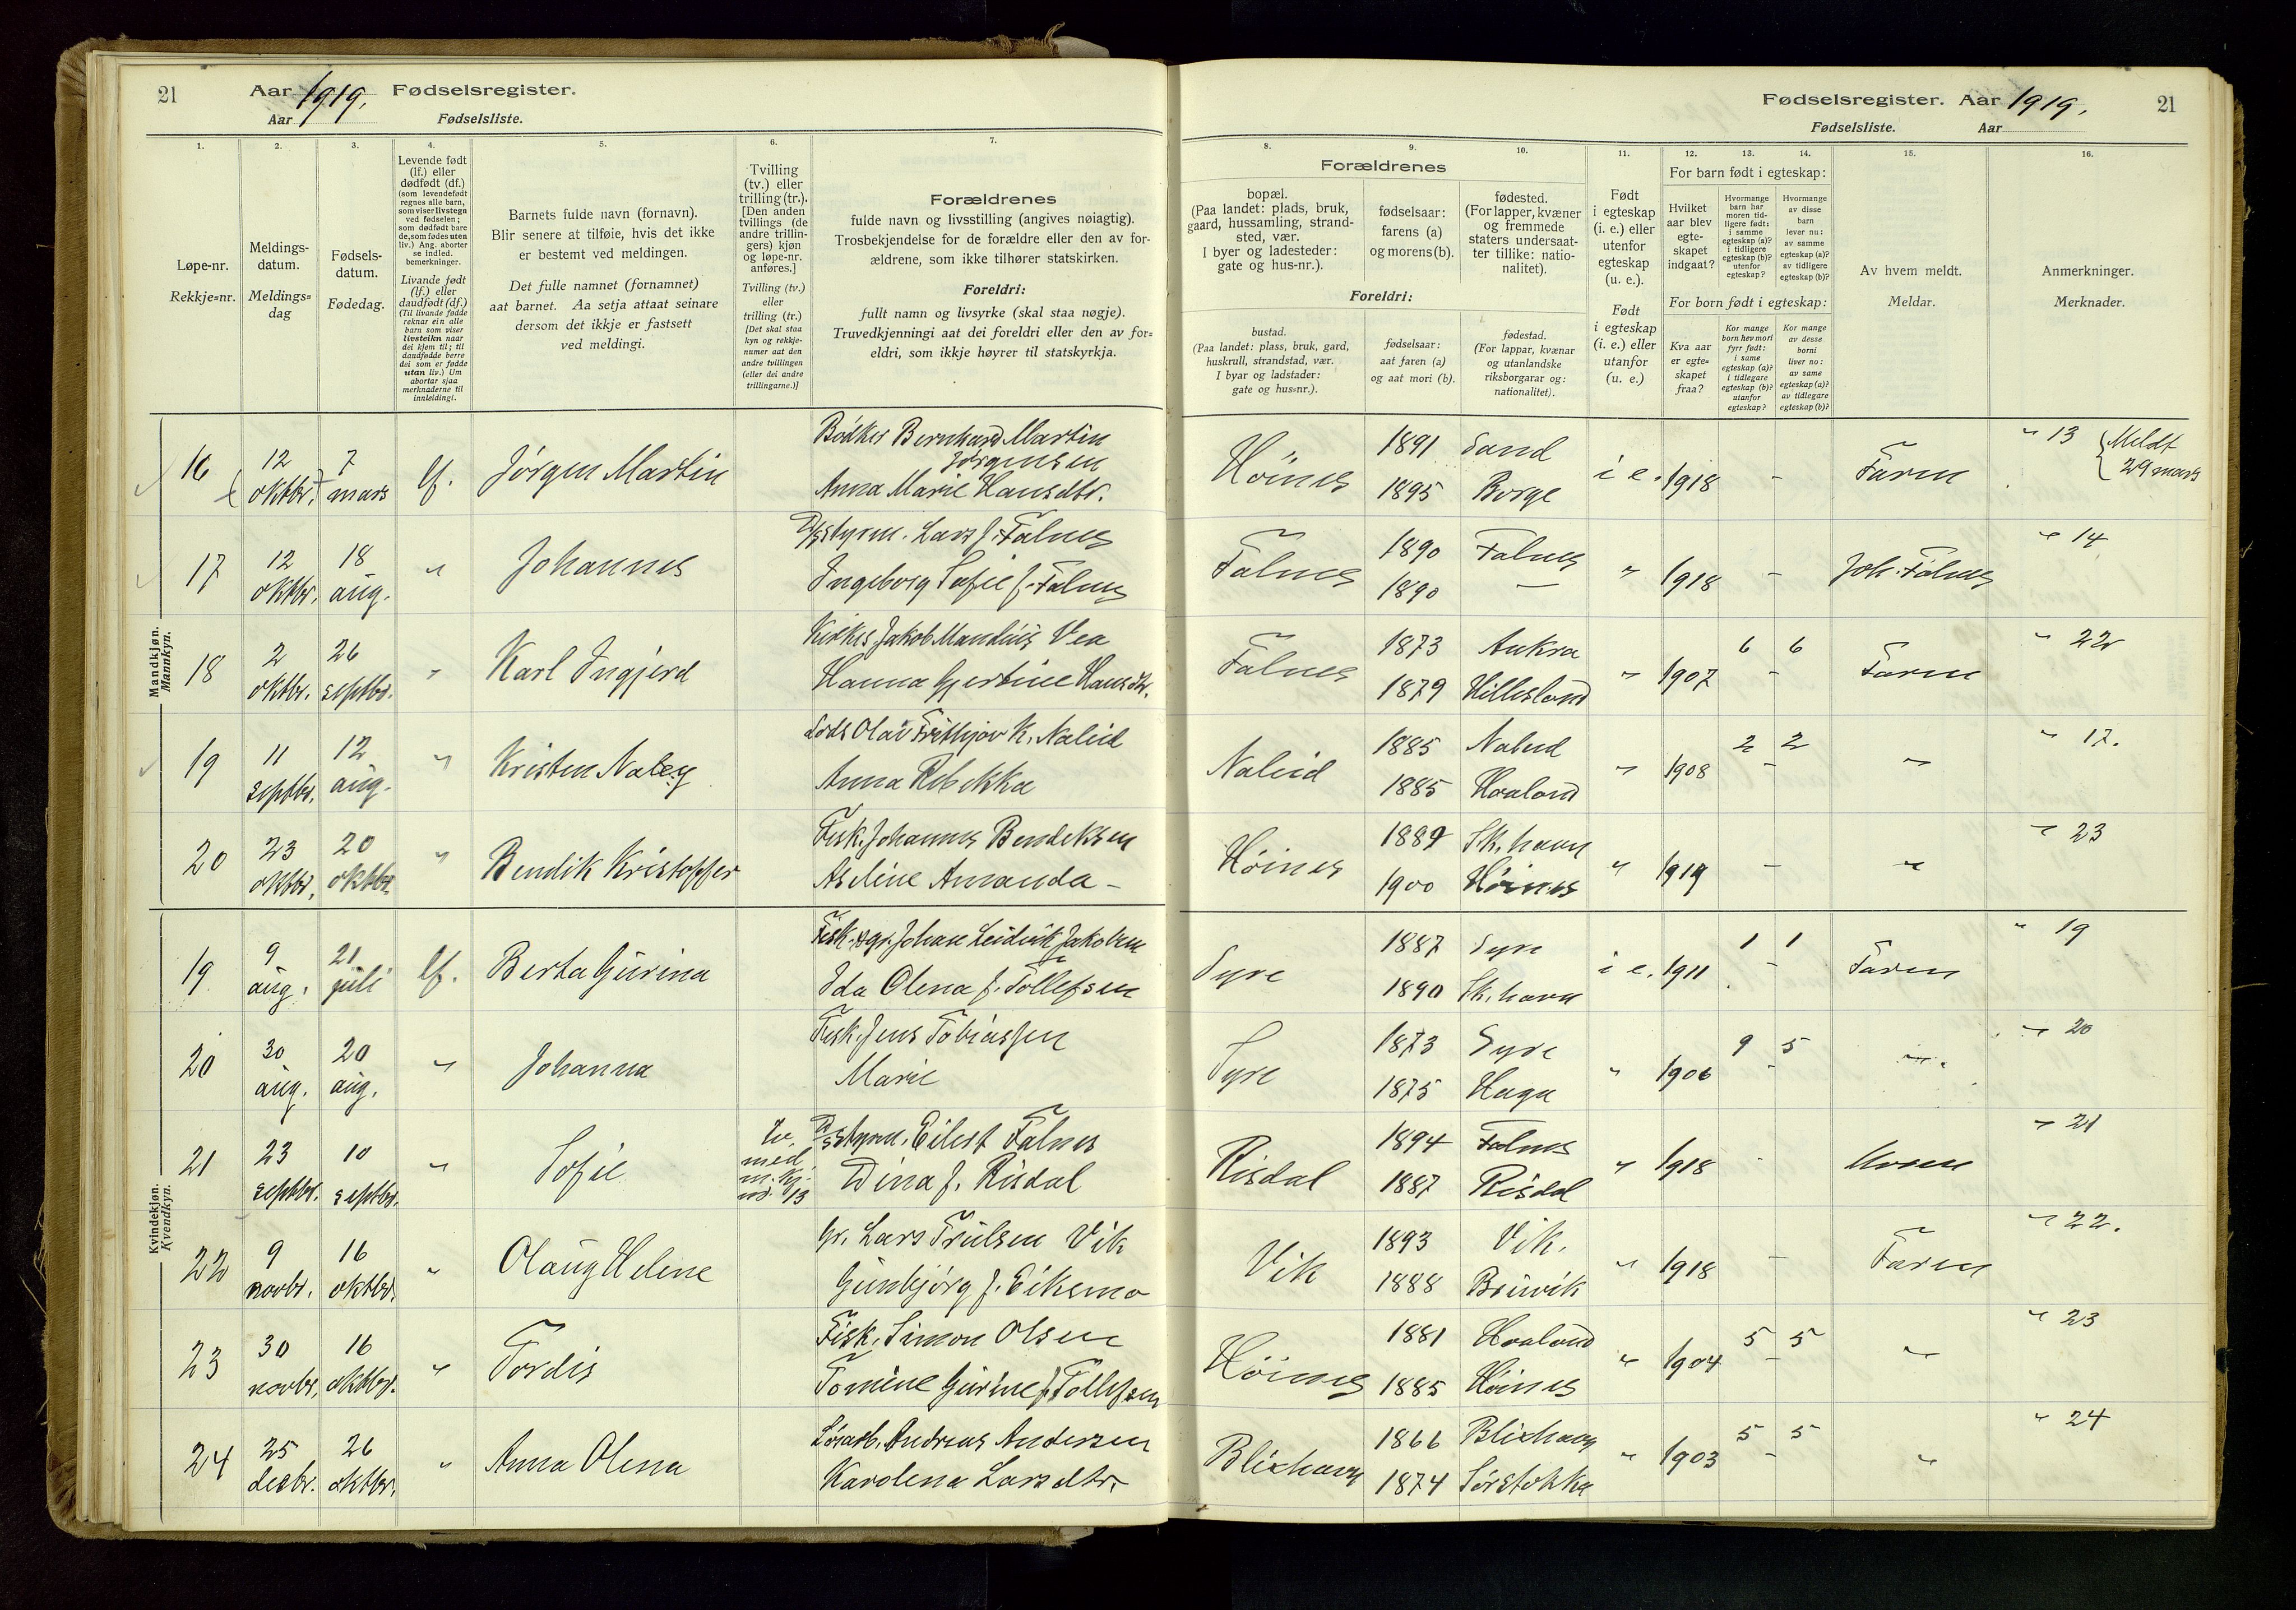 21
Aar 1919. Fødselsregister.
Aar Fødselsliste.
1. 2. 3. 4. 5. 6. 7.
Løpe-nr.
Rekkje=nr.
Meldings-
datum.
Meldings=
dag
Fødsels-
datum.
Fødedag.
Levende født
(lf.) eller
dødfødt (df.)
(som levendefødt
regnes alle barn,
som viser livstegn
ved fødselen;
som dødfødt bare
de, som fødes uten
liv.) Ang. aborter
se indled.
bemerkninger.
Livande født
(lf.) eller
daudfødt (df.)
(Til livande fødde
reknar ein alle
barn som viser
livsteikn naar
dei kjem til; til
daudfødde berre
dei som er fødde
utan liv.) Um
abortar sjaa
merknaderne til
innleidingi.
Barnets fulde navn (fornavn).
Blir senere at tilføie, hvis det ikke
er bestemt ved meldingen.
Det fulle namnet (fornamnet)
aat barnet. Aa setja attaat seinare
dersom det ikkje er fastsett
ved meldingi.
Tvilling
(tv.) eller
trilling (tr.).
[Den anden
tvillings (de
andre trillin-
gers) kjøn
og løpe-nr.
anføres.]
Tvilling (tv.)
eller
trilling (tr.)
[Det skal staa
kyn og rekkje-
numer aat den
andre tvillingen
(eller dei andre
trillingarne.)]
Forældrenes
fulde navn og livsstilling (angives nøiagtig).
Trosbekjendelse for de forældre eller den av for-
ældrene, som ikke tilhører statskirken.
Foreldri:
fullt namn og livsyrke (skal staa nøgje).
Truvedkjenningi aat dei foreldri eller den av for=
eldri, som ikkje høyrer til statskyrkja.
Mandkjøn.
Mannkyn.
16 12 oktbr. 7 mars lf. Jørgen Martin
Bødker Bernhard Martin
Jørgensen
Anna Marie Hansdtr.
17 12 oktbr. 18 aug. " Johannes
D/S styrm. Lars J. Falnes
Ingeborg Sofie f. Falnes
18 2 oktbr. 26 septbr. " Karl Ingjerd
Jakob Mandius Vea
Hanna Gjertine Hansdtr.
19 11 septbr. 12 aug. " Kristen Naley
Olav Frithjov K. Naleid
Anna Rebekka
20 23 oktbr. 20 oktbr. " Bendik Kristoffer
Fisk. Johannes Bendiksen
Aseline Amanda -
Kvindekjøn.
Kvendkyn.
19 9 aug. 21 juli lf. Berta Gurina
Fisk. og gr. Johan Leidvik Jakobsen
Ida Olena f. Tollefsen
20 30 aug. 20 aug. " Johanna
Fisk. Jens Tobiassen
Marie
21 23 septbr. 10 septbr. " Sofie
tv.
med
m. kj.
nr. 13
D/S styrm. Eilert Falnes
Dina f. Risdal
22 9 novbr. 16 oktbr. " Olaug Helene
Gr. Lars Trulsen Vik
Gunbjørg f. Eikemo
23 30 novbr. 16 oktbr. " Tordis
Fisk. Simon Olsen
Tomine Gurine f. Tollefsen
24 25 decbr. 26 oktbr. " Anna Olena
Andreas Andersen
Karolena Larsdtr.
Fødselsregister. Aar 1919. 21
Fødselsliste. Aar
8. 9. 10. 11. 12. 13. 14. 15. 16.
Forældrenes
bopæl.
(Paa landet: plads, bruk,
gaard, hussamling, strand-
sted, vær.
I byer og ladesteder:
gate og hus-nr.).
fødselsaar:
farens (a)
og morens (b).
fødested.
(For lapper, kvæner
og fremmede
staters undersaat-
ter tillike: natio-
nalitet).
Foreldri:
bustad.
(Paa landet: plass, bruk, gard,
huskrull, strandstad, vær.
I byar og ladstader:
gate og hus=nr.).
fødselsaar:
aat faren (a)
og aat mori (b).
fødestad.
(For lappar, kvænar
og utanlandske
riksborgarar og:
nationalitet).
Født
i egteskap
(i. e.) eller
utenfor
egteskap
(u. e.).
Født
i egteskap
(i. e.) eller
utanfor
(u. e.)
For barn født i egteskap:
Hvilket
aar blev
egte-
skapet
indgaat?
Hvormange
barn har
moren tid-
ligere født:
i samme
egteskap (a)?
i tidligere
egteskap (b)?
utenfor
egteskap?
Hvormange
av disse
barn
lever nu:
av samme
egteskap (a)?
av tidligere
egteskap (b)?
For born født i egteskap:
Kva aar
er egte=
skapet
fraa?
Kor mange
born hev mori
fyrr født:
i same
egteskap (a)?
i tidlegare
egteskap (b)?
utanfor
egteskap?
Kor mange
av desse
borni
liver no:
av same
egteskap (a)?
av tidlegare
egteskap (b)?
Av hvem meldt.
Meldar.
Anmerkninger.
Merknader.
Høines 1891 Sand i e. 1918 - Faren " 13 Meldt
1895 Borge 29 mars
Falnes 1890 Falnes " 1918 - Joh. Falnes " 14
1890 —
Falnes 1873 Aukra " 1907 6 - 6 Faren " 22
1879 Hillesland
Naleid 1885 Naleid " 1908 2 - 2 " " 17.
1885 Haaland
Høines 1889 Sk.havn " 1919 - " " 23
1900 Høines
Syre 1887 Syre i e. 1911 1 - 1 Faren " 19
1890 Sk.havn
Syre 1873 Syre " 1906 9 - 5 " " 20
1875 Haga
Risdal 1894 Falnes " 1918 - Moren " 21
1887 Risdal
Vik 1893 Vik. " 1918 - Faren " 22.
1888 Bruvik
Høines 1881 Haaland " 1904 5 - 5 " " 23
1885 Høines
Blixhavn 1866 Blixhavn " 1903 5 - 5 " " 24
1874 Sørstokka